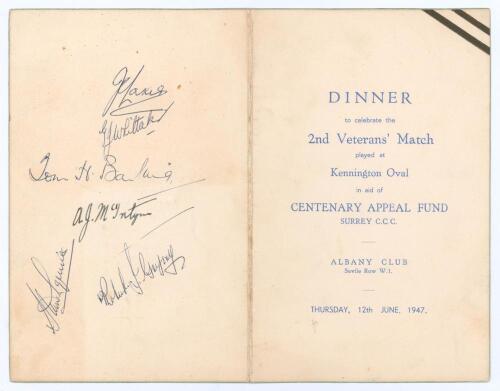 G J Whittaker
Tom H. Barling
A. J. McIntyre
DINNER
to celebrate the
2nd Veterans' Match
played at
Kennington Oval
in aid of
CENTENARY APPEAL FUND
SURREY C.C.C.
ALBANY CLUB
Savile Row W.1.
THURSDAY, 12th JUNE, 1947.